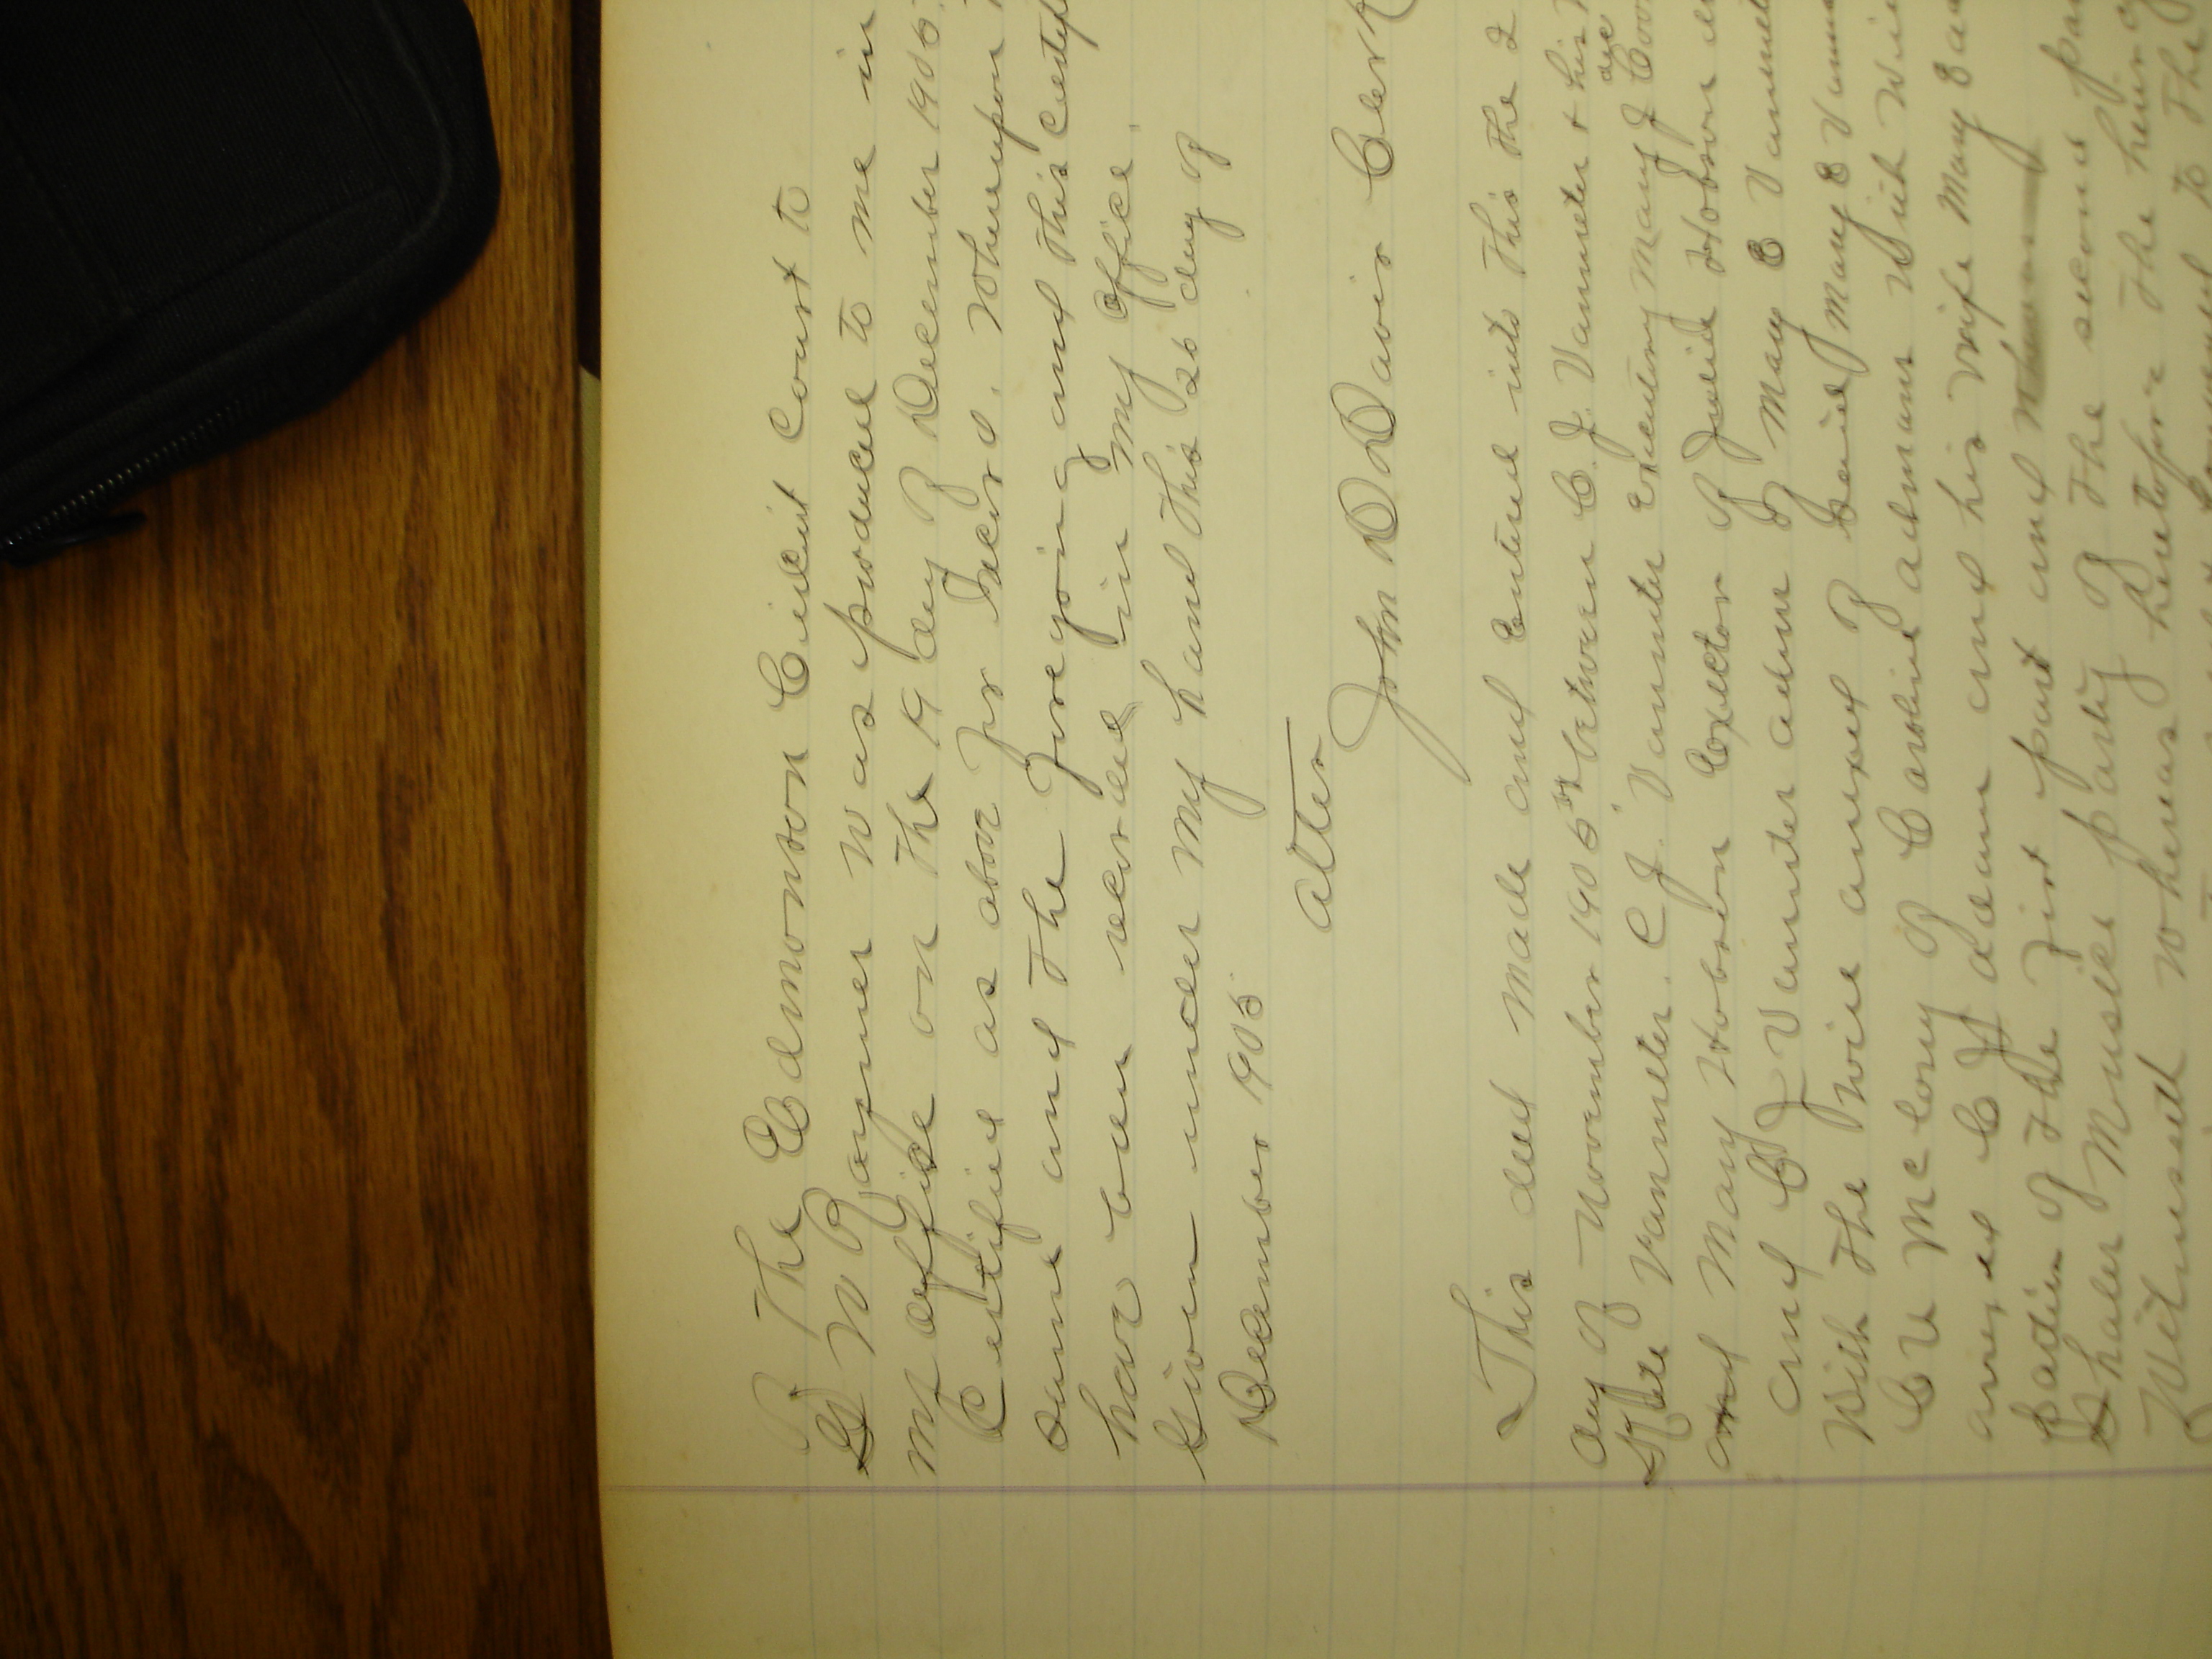 of The Edmonson Circuit Court to
G W Raymer was produced to me in
my office on the 19 day of December 1905
Certified as above for record. Whereupon
same and the foregoing and this Certif
have been recorded in my office
Given under my hand this 26 day of
December 1905
attes
John D Davis Clerk
This deed made and Entered into this the 2
day of November 1905 between C. J. Vanmeter & his
State Vanmeter. C J. Vanmeter Executry Mary J Coo
and Mary Hobson Expector of Julia Hobson
and C J Vanmeter admr of Mary E Vanmet
With the Will anexed of Said Mary E Vanm
C U McElory of Caroline Adamans With Wi
anexed C J Adam and his wife Mary E
parties of the first part and
Shaler Mousler party of the second pa
Witnesseth Whereas heretofore the
to The